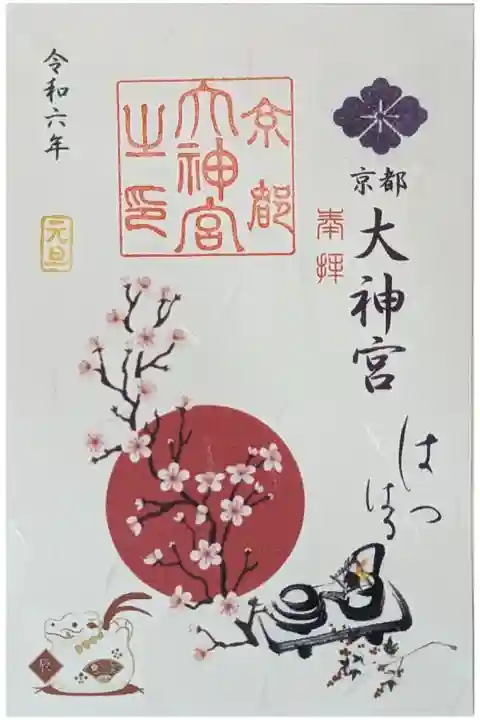 京都
大神宮
奉拝
はつ
はる
京都
大神宮
之印
令和六年
元旦
辰